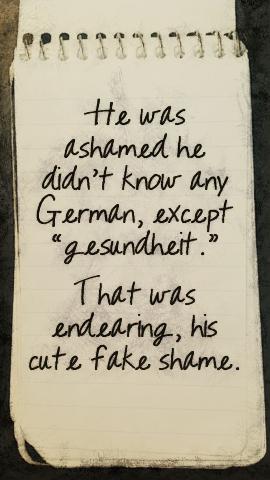 He was
ashamed he
didn't know any
German, except
"gesundheit."
That was
endearing, his
cute fake shame.